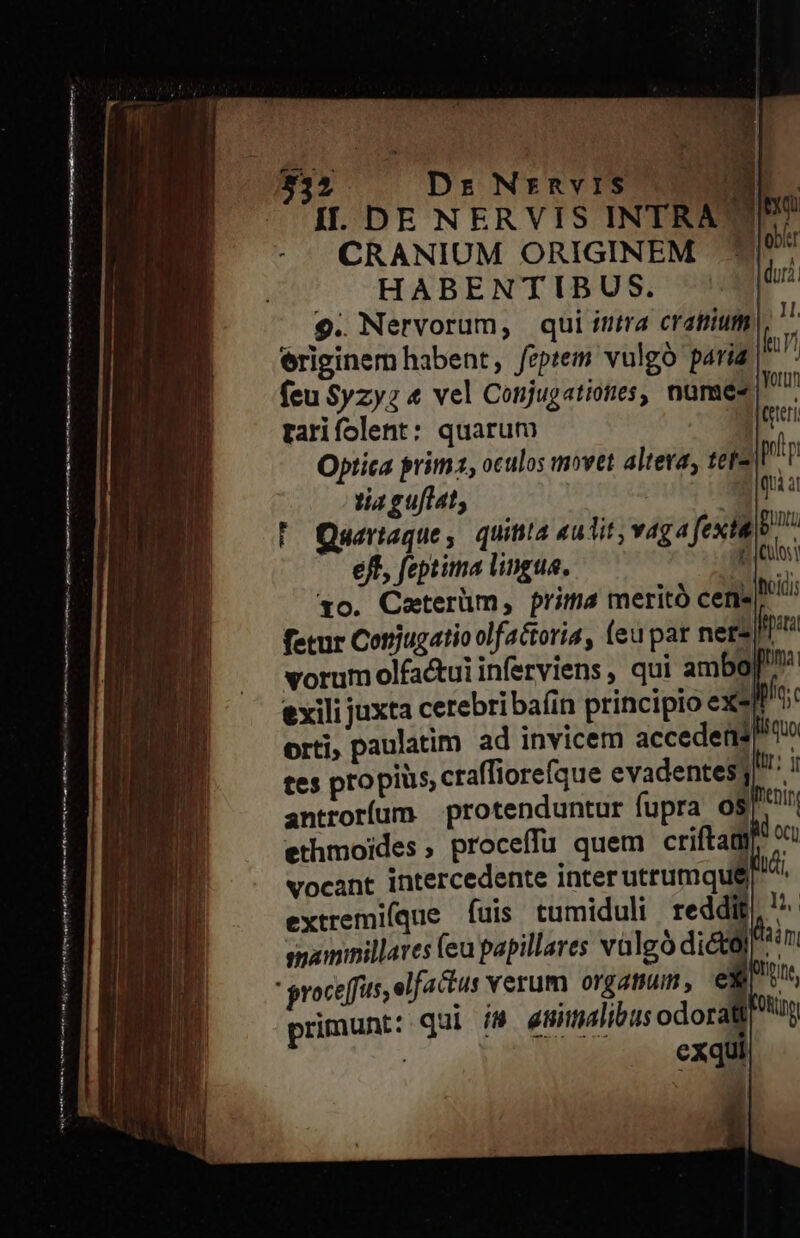 532 De Nervis
II. DE NERVIS INTRA
CRANIUM ORIGINEM
HABENTIBUS.
9. Nervorum, qui intra cranium
originem habent, ſeptem vulgò paria
ſeu Syzygiæ vel Conjugationes, nume-
rari ſolent: quarum
Optica prima, oculos movet altera, ter-
tia guſtat,
Quartaque, quinta audit, vaga ſexta
eſt, ſeptima lingua.
10. Cæterùm, prima meritò cen-
ſetur Conjugatio olfactoria, ſeu par ner-
vorum olfactui inſerviens, qui ambo
exili juxta cerebri baſin principio ex-
orti, paulatim ad invicem acceden-
tes propiùs, craſſioreſque evadentes,
antrorſum protenduntur ſupra os
ethmoides, proceſſu quem criſtam
vocant intercedente inter utrumque,
extremiſque ſuis tumiduli reddit
mammillares ſeu papillares vulgò dictos
proceſſus, olfactus verum organum, ex-
primunt: qui in animalibus odoratu
exqui